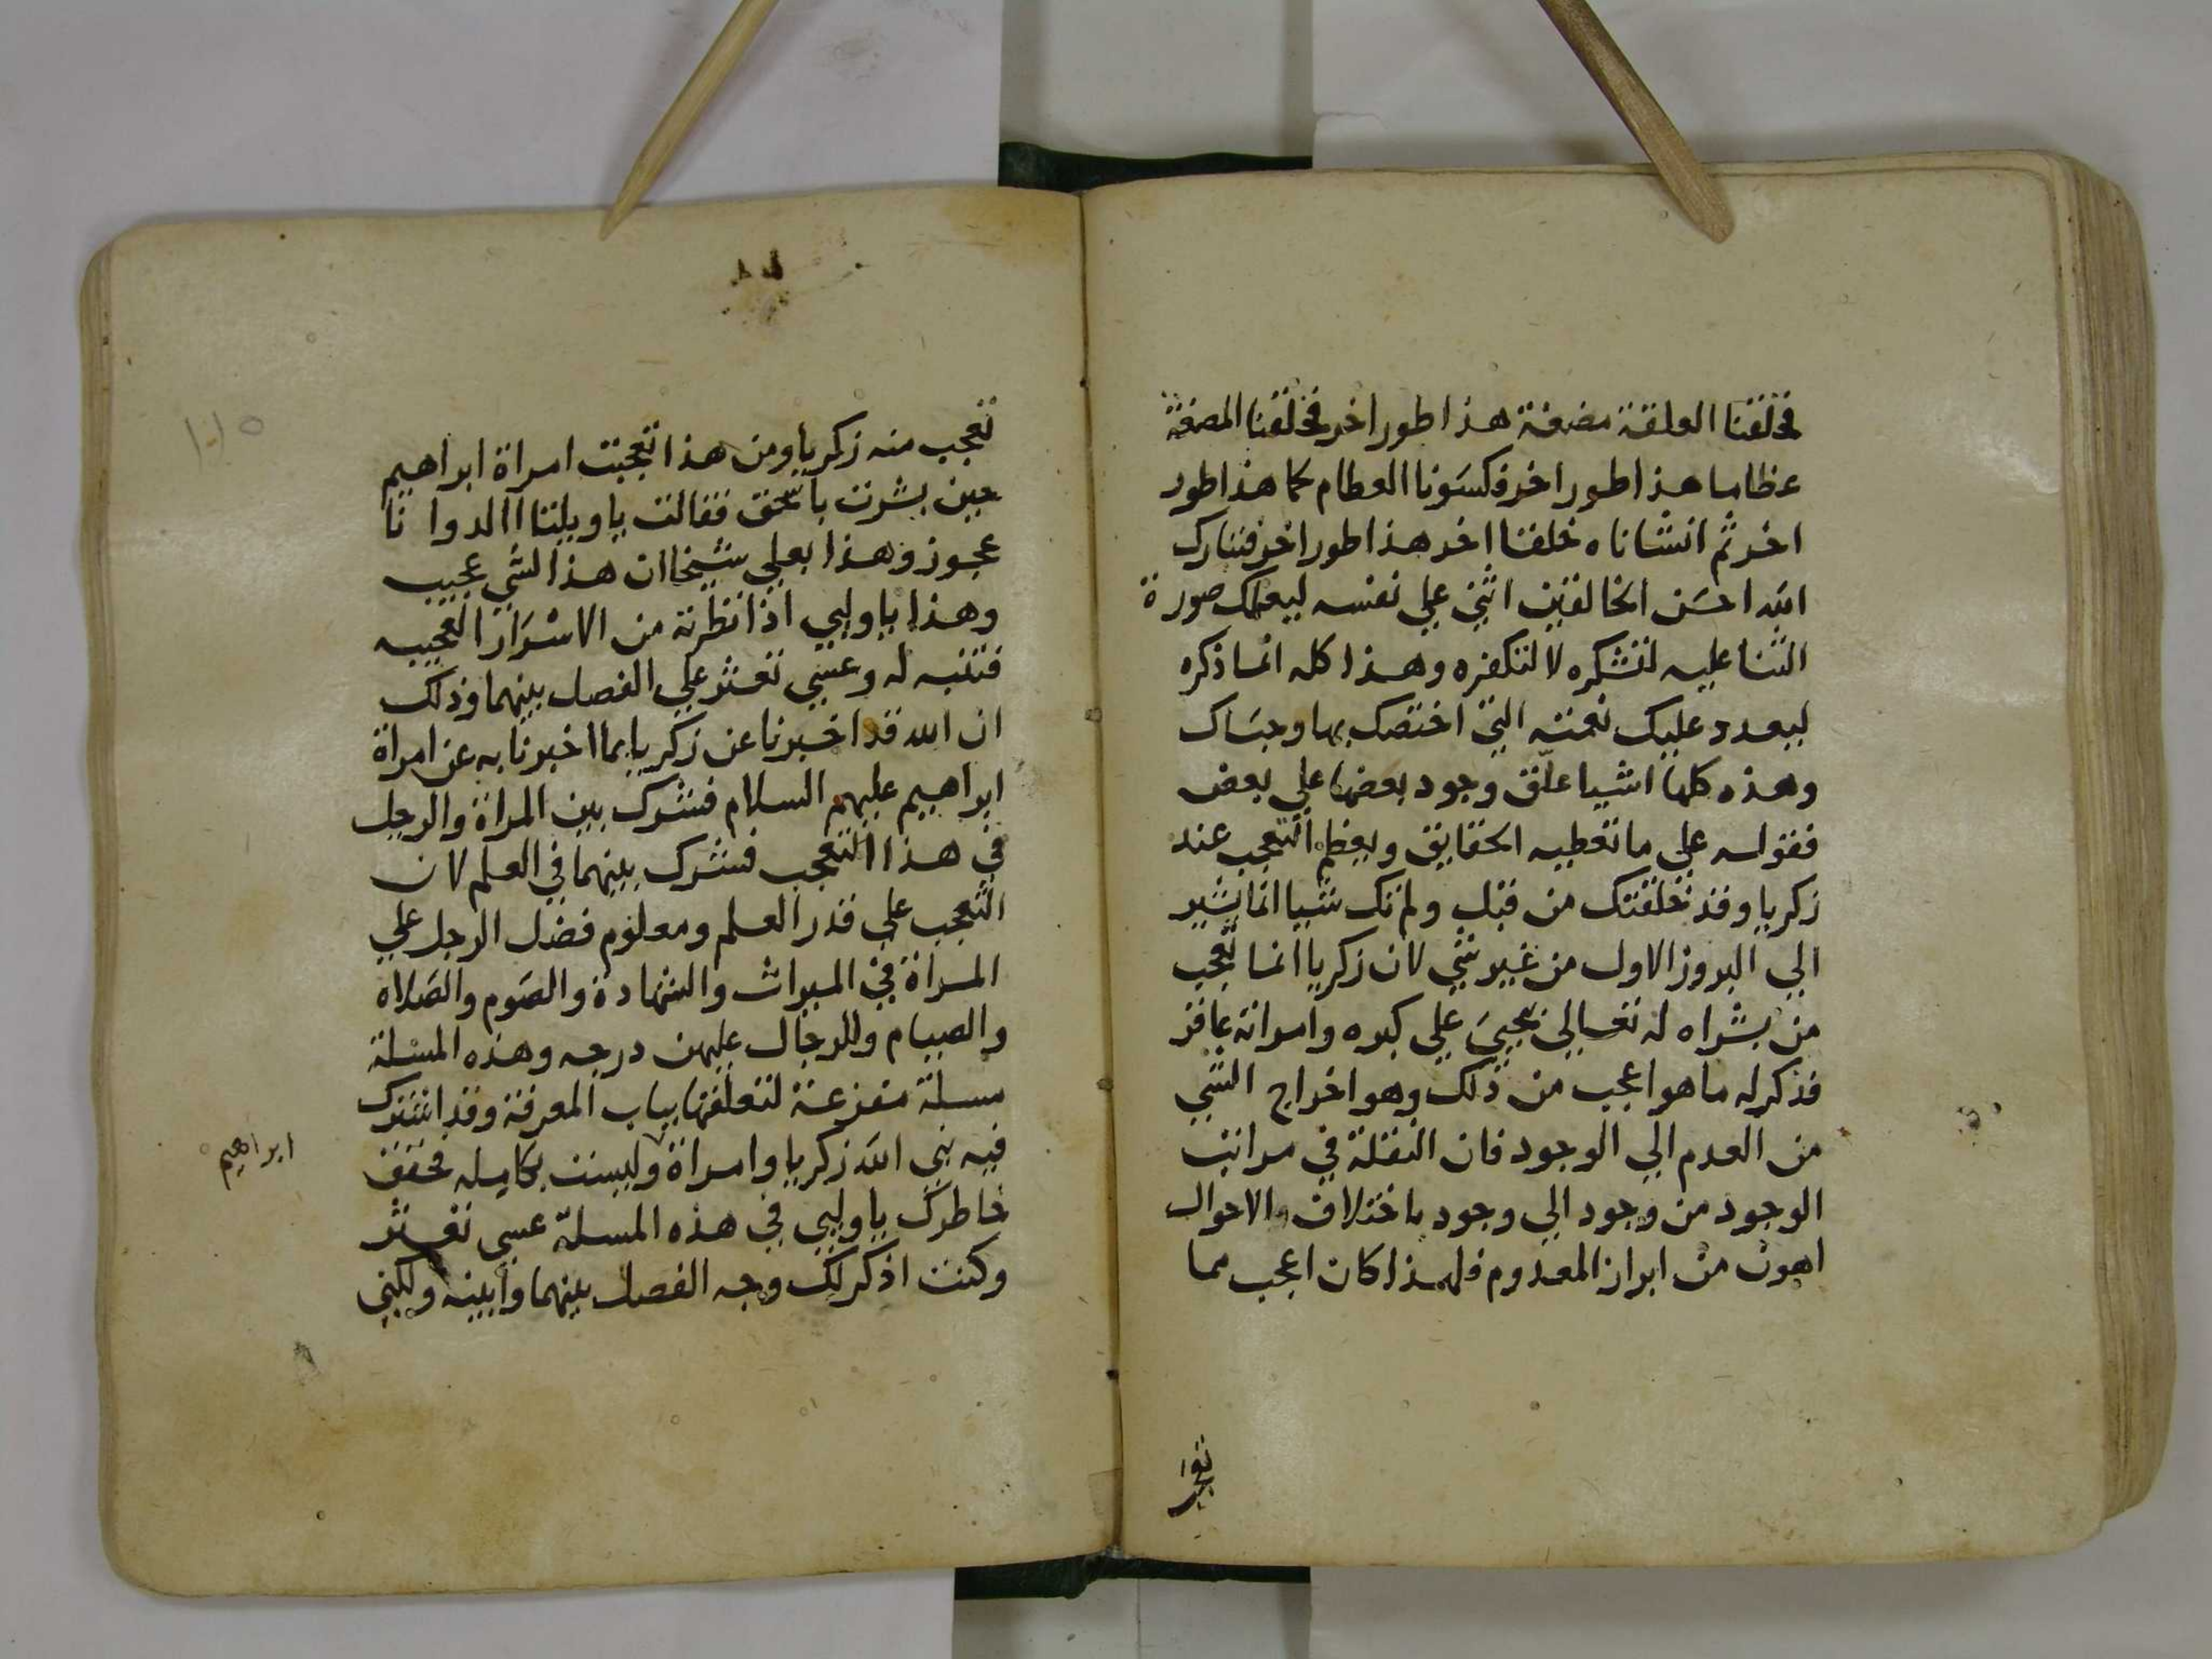 فخلقنا العلقة مضغة هذا طور اخر فخلقنا المضغة
عظاما هذا طور اخر فكسونا العظام لحما هذا طور
اخر ثم انشاناه خلقا اخر هذا طور اخر فتبارك
الله احسن الخالقين اثني علي نفسه ليعلمك صورة
الثنا عليه لتشكره لا لتكفره وهذا كله انما ذكره
ليعدد عليك نعمته التي اختصك بها وحباك
وهذه كلها اشيا علق وجود بعضها علي بعض
فقوله علي ما تعطيه الحقايق ويعظم التعجب عند
زكريا وقد خلقتك من قبل ولم تك شيا انما يشير
الي البروز الاول من غير شي لان زكريا انما تعجب
من بشراه له تعالي بيحيي علي كبره وامراته عاقر
فذكر له ما هو اعجب من ذلك وهو اخراج الشي
من العدم الي الوجود فان النقلة في مراتب
الوجود من وجود الي وجود باختلاف والاحوال
اهون من ابراز المعدوم فلهذا كان اعجب مما
تعجب
١٠٥
تعجب منه زكريا ومن هذا تعجبت امراة ابراهيم
حين بشرت باسحق فقالت يا ويلتا االد وانا
عجوز وهذا بعلي شيخا ان هذا لشي عجيب
وهذا يا وليي اذا نظرته من الاسرار العجيبه
فتنبه له وعسي تعثر علي الفصل بينهما وذلك
ان الله قد اخبرنا عن زكريا بما اخبرنا به عن امراة
ابراهيم عليهم السلام فشرك بين المراة والرجل
في هذا التعجب فشرك بينهما في العلم لان
التعجب علي قدر العلم ومعلوم فضل الرجل علي
المراة في الميراث والشهادة والصوم والصلاه
والصيام وللرجال عليهن درجه وهذه المسلة
مسلة مفزعة لتعلقها بباب المعرفة وقد اشترك
فيه نبي الله زكريا وامراة وليست بكاميله فحقق
ابراهيم
خاطرك يا وليي في هذه المسلة عسي تعثر
وكنت اذكر لك وجه الفصل بينهما وابينه ولكني